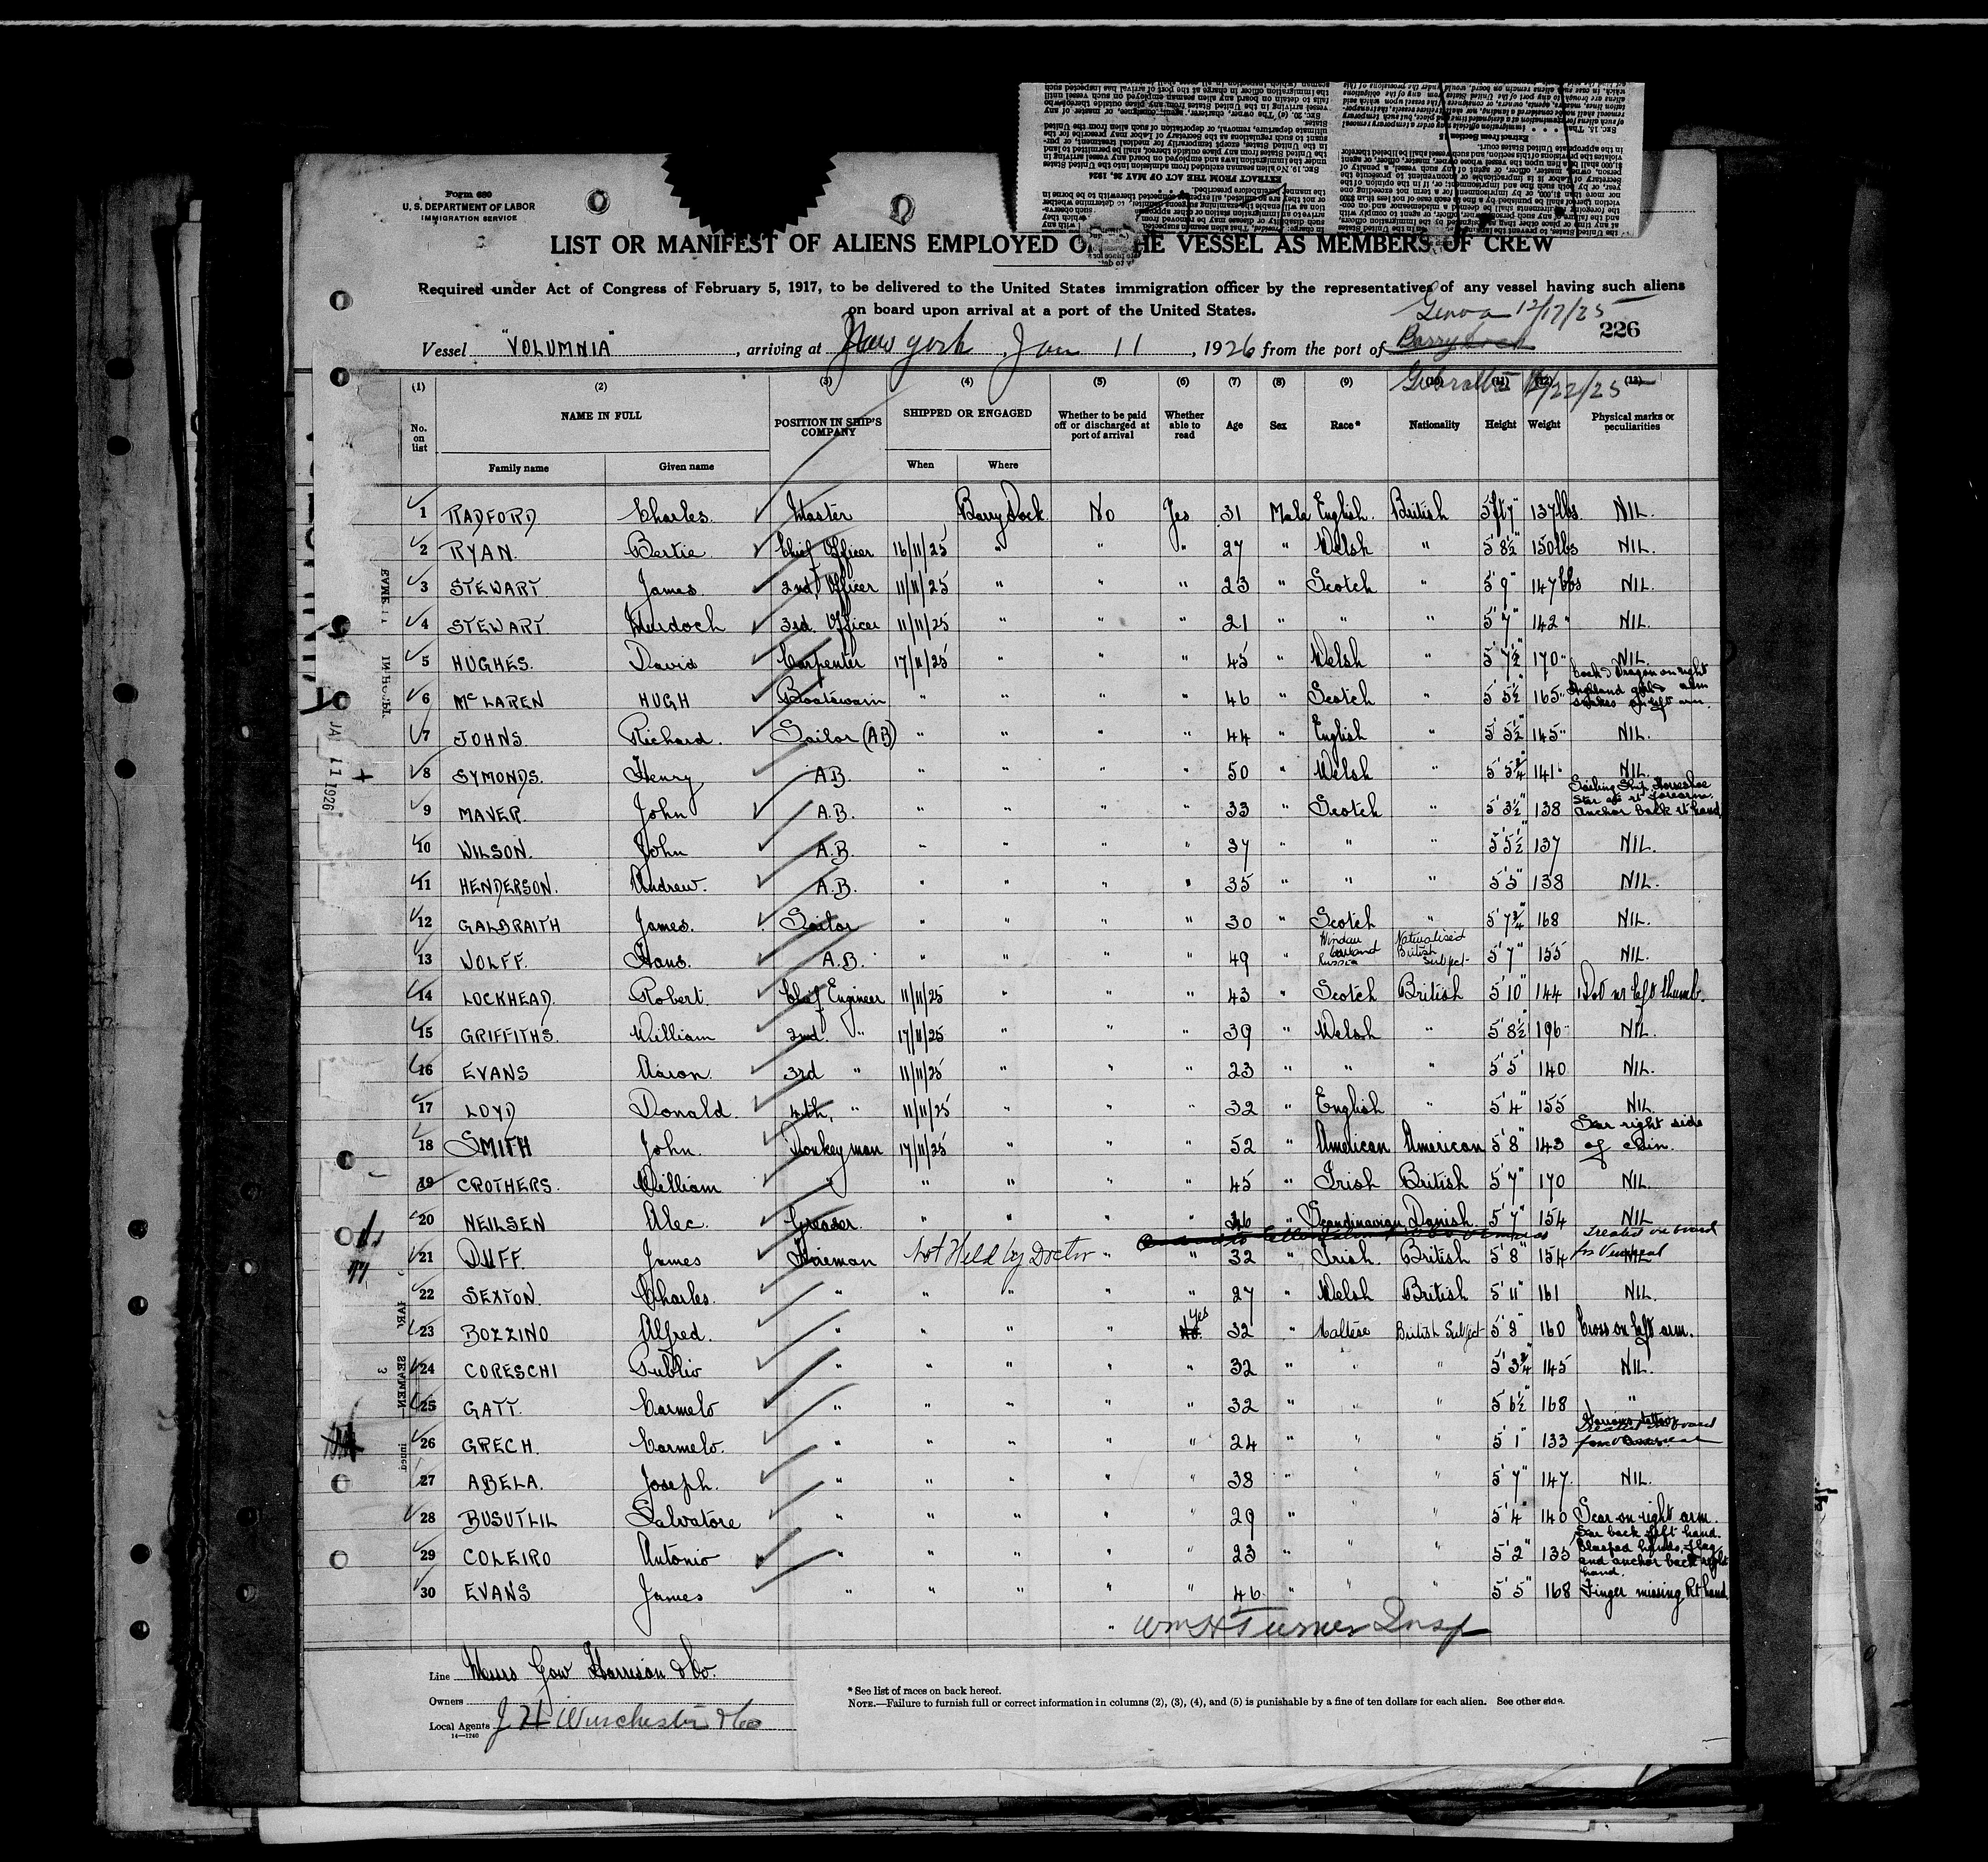 Form 680
U. S. DEPARTMENT OF LABOR
IMMIGRATION SERVICE
LIST OR MANIFEST OF ALIENS EMPLOYED ON THE VESSEL AS MEMBERS OF CREW
Required under Act of Congress of February 5, 1917, to be delivered to the United States immigration officer by the representatives of any vessel having such aliens
on board upon arrival at a port of the United States.
Genoa 12/17/25
226
Vessel "VOLUMNIA", arriving at New York, Jan 11, 1926 from the port of Barry Dock
Gibraltar 12/22/25
(1) (2) (3) (4) (5) (6) (7) (8) (9) (10) (11) (12) (13)
No. on list NAME IN FULL POSITION IN SHIP'S COMPANY SHIPPED OR ENGAGED Whether to be paid off or discharged at port of arrival Whether able to read Age Sex Race* Nationality Height Weight Physical marks or peculiarities
Family name Given name When Where
1 RADFORD Charles. Master Barry Dock No Yes 31 Male English. British 5ft 7" 137lbs. NIL.
2 RYAN. Bertie Chief Officer 16/11/25 " " " 27 " Welsh " 5' 8½" 150lbs NIL.
3 STEWART. James. 2nd Officer 11/11/25 " " " 23 " Scotch " 5' 9" 147lbs NIL.
4 STEWART. Murdoch 3rd. Officer 11/11/25 " " " 21 " " " 5' 7" 142 " NIL.
5 HUGHES. David Carpenter 17/11/25 " " " 45 " Welsh " 5' 7½" 170 " NIL.
6 McLAREN HUGH Boatswain " " " " 46 " Scotch " 5' 5½" 165 " Dragon on right arm left arm.
7 JOHNS. Richard. Sailor (AB) " " " " 44 " English " 5' 5½" 145 " NIL.
8 SYMONDS. Henry A.B. " " " " 50 " Welsh " 5' 5¾" 141 " NIL.
9 MAVER. John A.B. " " " " 33 " Scotch " 5' 3½" 138 Sailing Ship, Horseshoe Star rt forearm. Anchor back rt hand.
10 WILSON. John A.B. " " " " 37 " " " 5' 5½" 137 NIL.
11 HENDERSON. Andrew. A.B. " " " " 35 " " " 5' 5" 138 NIL.
12 GALBRAITH James. Sailor " " " " 30 " Scotch " 5' 7¾" 168 NIL.
13 WOLFF. Hans. A.B. " " " " 49 " Windau Courland Russia Naturalised British Subject 5' 7" 155 NIL.
14 LOCKHEAD. Robert. Chief Engineer 11/11/25 " " " 43 " Scotch British 5' 10" 144 left thumb.
15 GRIFFITHS. William 2nd. " 17/11/25 " " " 39 " Welsh " 5' 8½" 196 NIL.
16 EVANS Aaron. 3rd " 11/11/25 " " " 23 " " " 5' 5" 140 NIL.
17 LOYD Donald. 4th. " 11/11/25 " " " 32 " English " 5' 4" 155 NIL.
18 SMITH John. Donkeyman 17/11/25 " " " 52 " American American 5' 8" 143 Scar right side of chin.
19 CROTHERS. William " " " " " 45 " Irish British 5' 7" 170 NIL.
20 NEILSEN Alec. Greaser. " " " " 26 " Scandinavian Danish. 5' 7" 154 NIL
21 DUFF. James Fireman Not Held by Doctor " " 32 " Irish. British 5' 8" 154 Treated on board for Venereal
22 SEXTON. Charles. " " " " " 27 " Welsh British 5' 11" 161 NIL.
23 BOZZINO Alfred. " " " " Yes 32 " Maltese British Subject 5' 8" 160 Cross on left arm.
24 CORESCHI Publio " " " " " 32 " " " 5' 3¾" 145 NIL.
25 GATT. Carmelo " " " " " 32 " " " 5' 6½" 168 "
26 GRECH. Carmelo. " " " " " 24 " " " 5' 1" 133 Treated on board for Venereal
27 ABELA. Joseph. " " " " " 38 " " " 5' 7" 147. NIL.
28 BUSUTLIL Salvatore " " " " " 29 " " " 5' 4" 140 Scar on right arm.
29 COLEIRO Antonio " " " " " 23 " " " 5' 2" 135 Scar back left hand. Clasped hands, Flag and anchor back right hand.
30 EVANS James " " " " " 46. " " " 5' 5" 168 Finger missing Rt hand.
Wm H Turner Insp
Line Messrs Gow Harrison & Co.
Owners
Local Agents J H Winchester & Co
14—1240
* See list of races on back hereof.
NOTE.—Failure to furnish full or correct information in columns (2), (3), (4), and (5) is punishable by a fine of ten dollars for each alien. See other side.